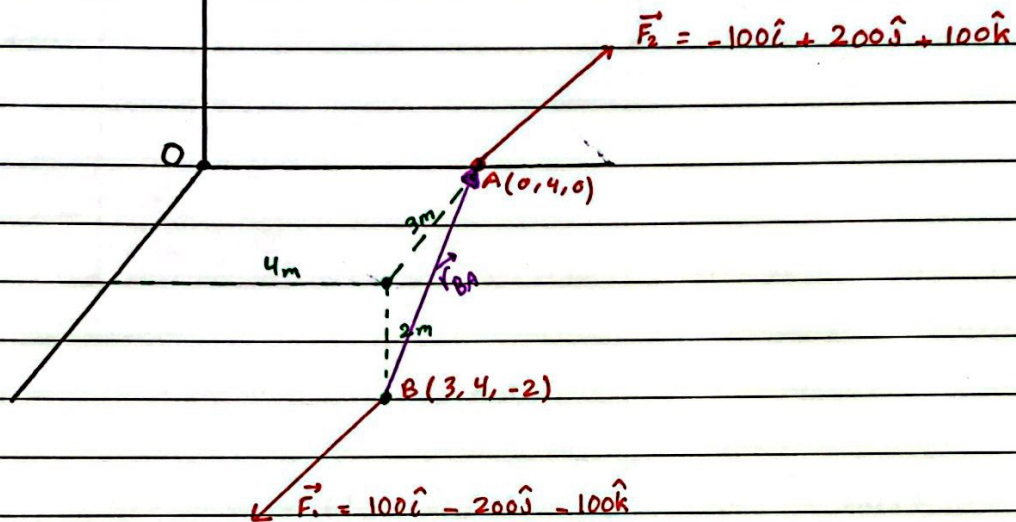 F⃗₂ = -100î + 200ĵ + 100k̂
O
A(0,4,0)
3m
4m
r⃗BA
2m
B(3, 4, -2)
F⃗₁ = 100î - 200ĵ - 100k̂